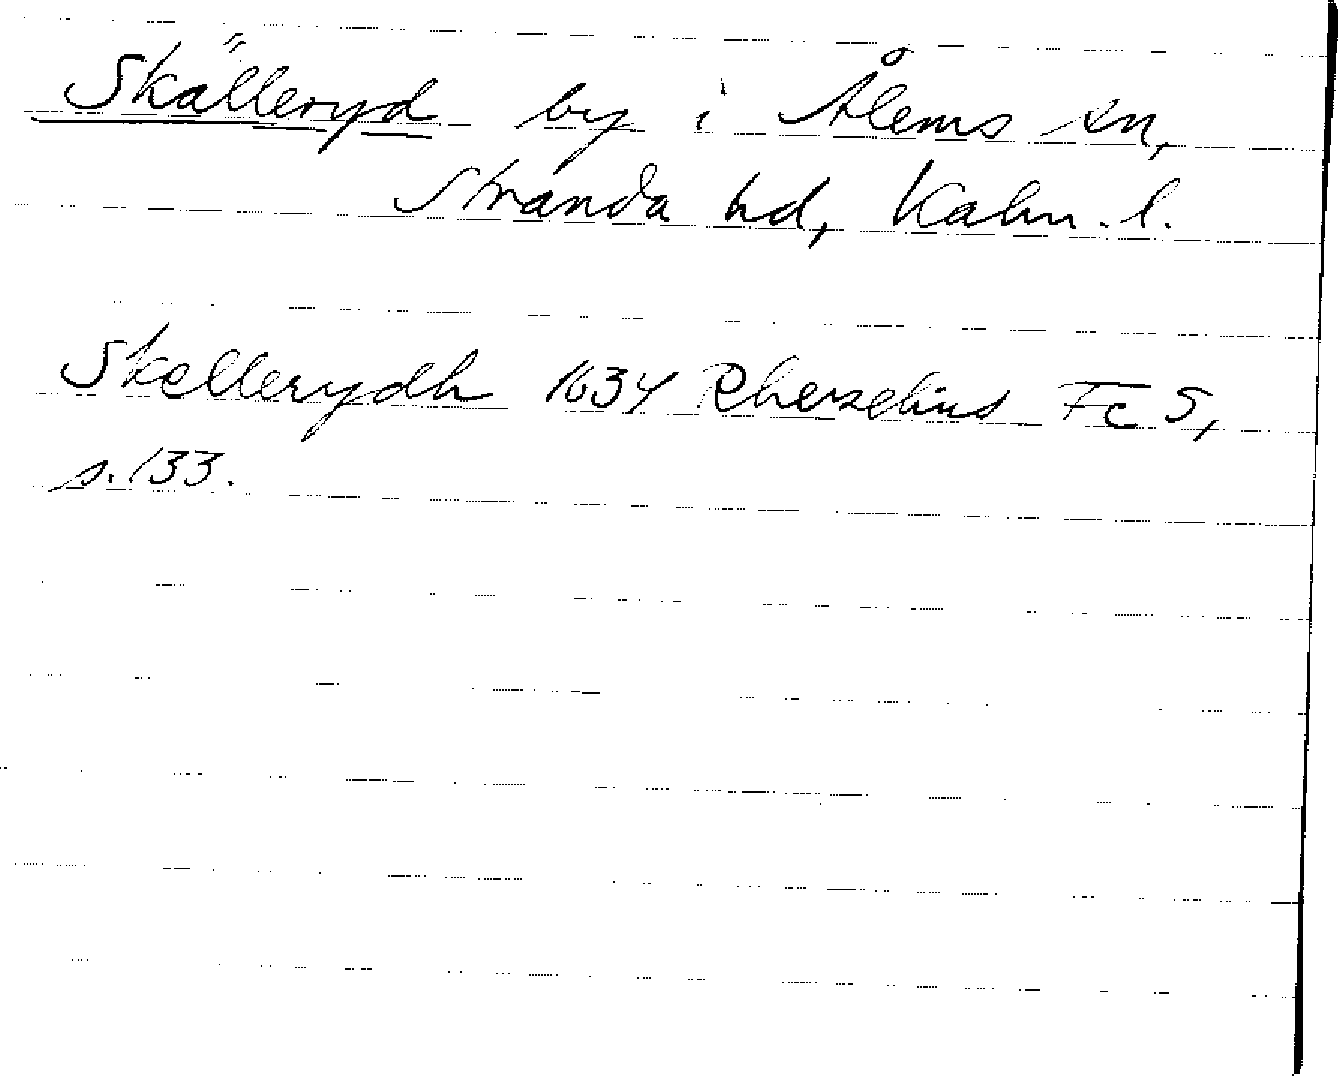 Skälleryd by i Ålems sn,
Stranda hd, Kalm. l.
Skellerydh 1634 Rhezelius Fc 5,
s. 133.